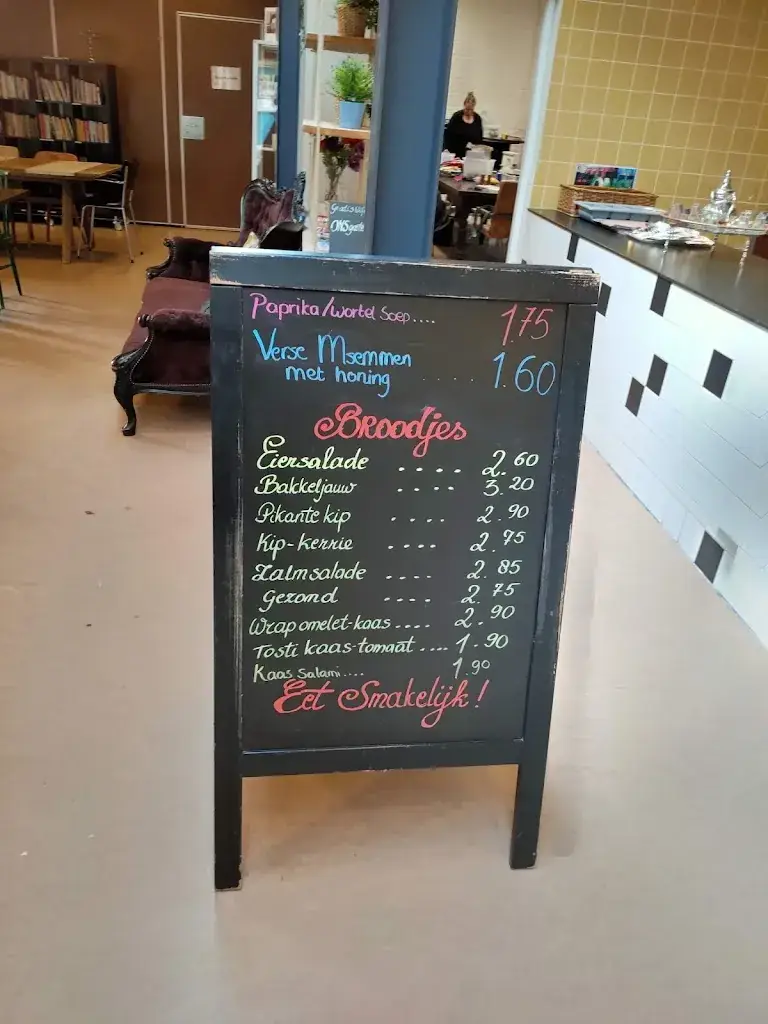 Paprika/wortel soep.... 1.75
Verse Msemmen
met honing ..... 1.60
Broodjes
Eiersalade .... 2.60
Bakkeljauw .... 3.20
Pikante kip .... 2.90
Kip-kerrie .... 2.75
Zalmsalade .... 2.85
Gezond .... 2.75
Wrap omelet-kaas .... 2.90
Tosti kaas-tomaat .... 1.90
Kaas Salami .... 1.90
Eet Smakelijk!